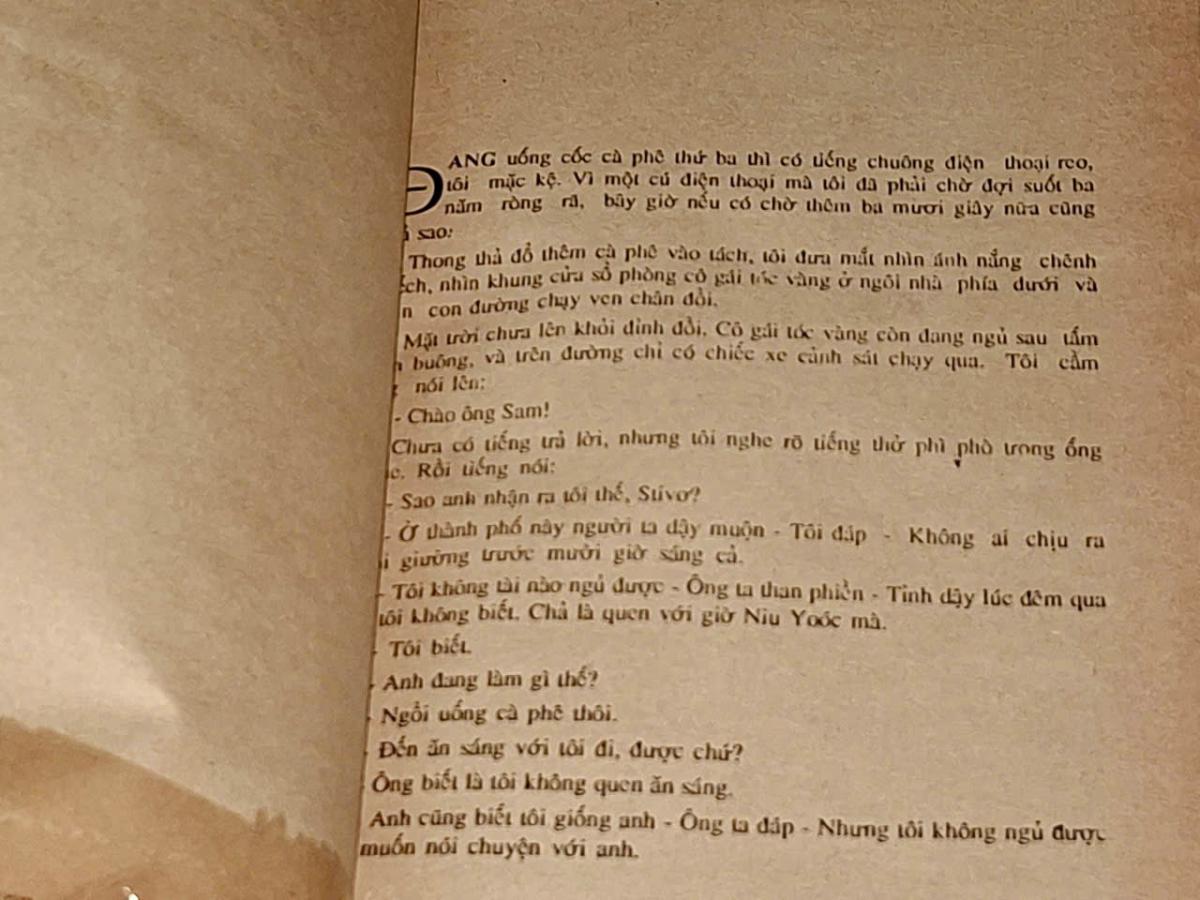 ĐANG uống cốc cà phê thứ ba thì có tiếng chuông điện thoại reo,
tôi mặc kệ. Vì một cú điện thoại mà tôi đã phải chờ đợi suốt ba
năm ròng rã, bây giờ nếu có chờ thêm ba mươi giây nữa cũng
sao:
Thong thả đổ thêm cà phê vào tách, tôi đưa mắt nhìn ánh nắng chênh
ếch, nhìn khung cửa sổ phòng cô gái tóc vàng ở ngôi nhà phía dưới và
n con đường chạy ven chân đồi.
Mặt trời chưa lên khỏi đỉnh đồi. Cô gái tóc vàng còn đang ngủ sau tấm
buông, và trên đường chỉ có chiếc xe cảnh sát chạy qua. Tôi cầm
nói lên:
- Chào ông Sam!
Chưa có tiếng trả lời, nhưng tôi nghe rõ tiếng thở phì phò trong ống
Rồi tiếng nói:
- Sao anh nhận ra tôi thế, Stivơ?
- Ở thành phố này người ta dậy muộn - Tôi đáp - Không ai chịu ra
i giường trước mười giờ sáng cả.
- Tôi không tài nào ngủ được - Ông ta than phiền - Tỉnh dậy lúc đêm qua
tôi không biết. Chả là quen với giờ Niu Yoóc mà.
- Tôi biết.
- Anh đang làm gì thế?
- Ngồi uống cà phê thôi.
- Đến ăn sáng với tôi đi, được chứ?
- Ông biết là tôi không quen ăn sáng.
Anh cũng biết tôi giống anh - Ông ta đáp - Nhưng tôi không ngủ được
muốn nói chuyện với anh.